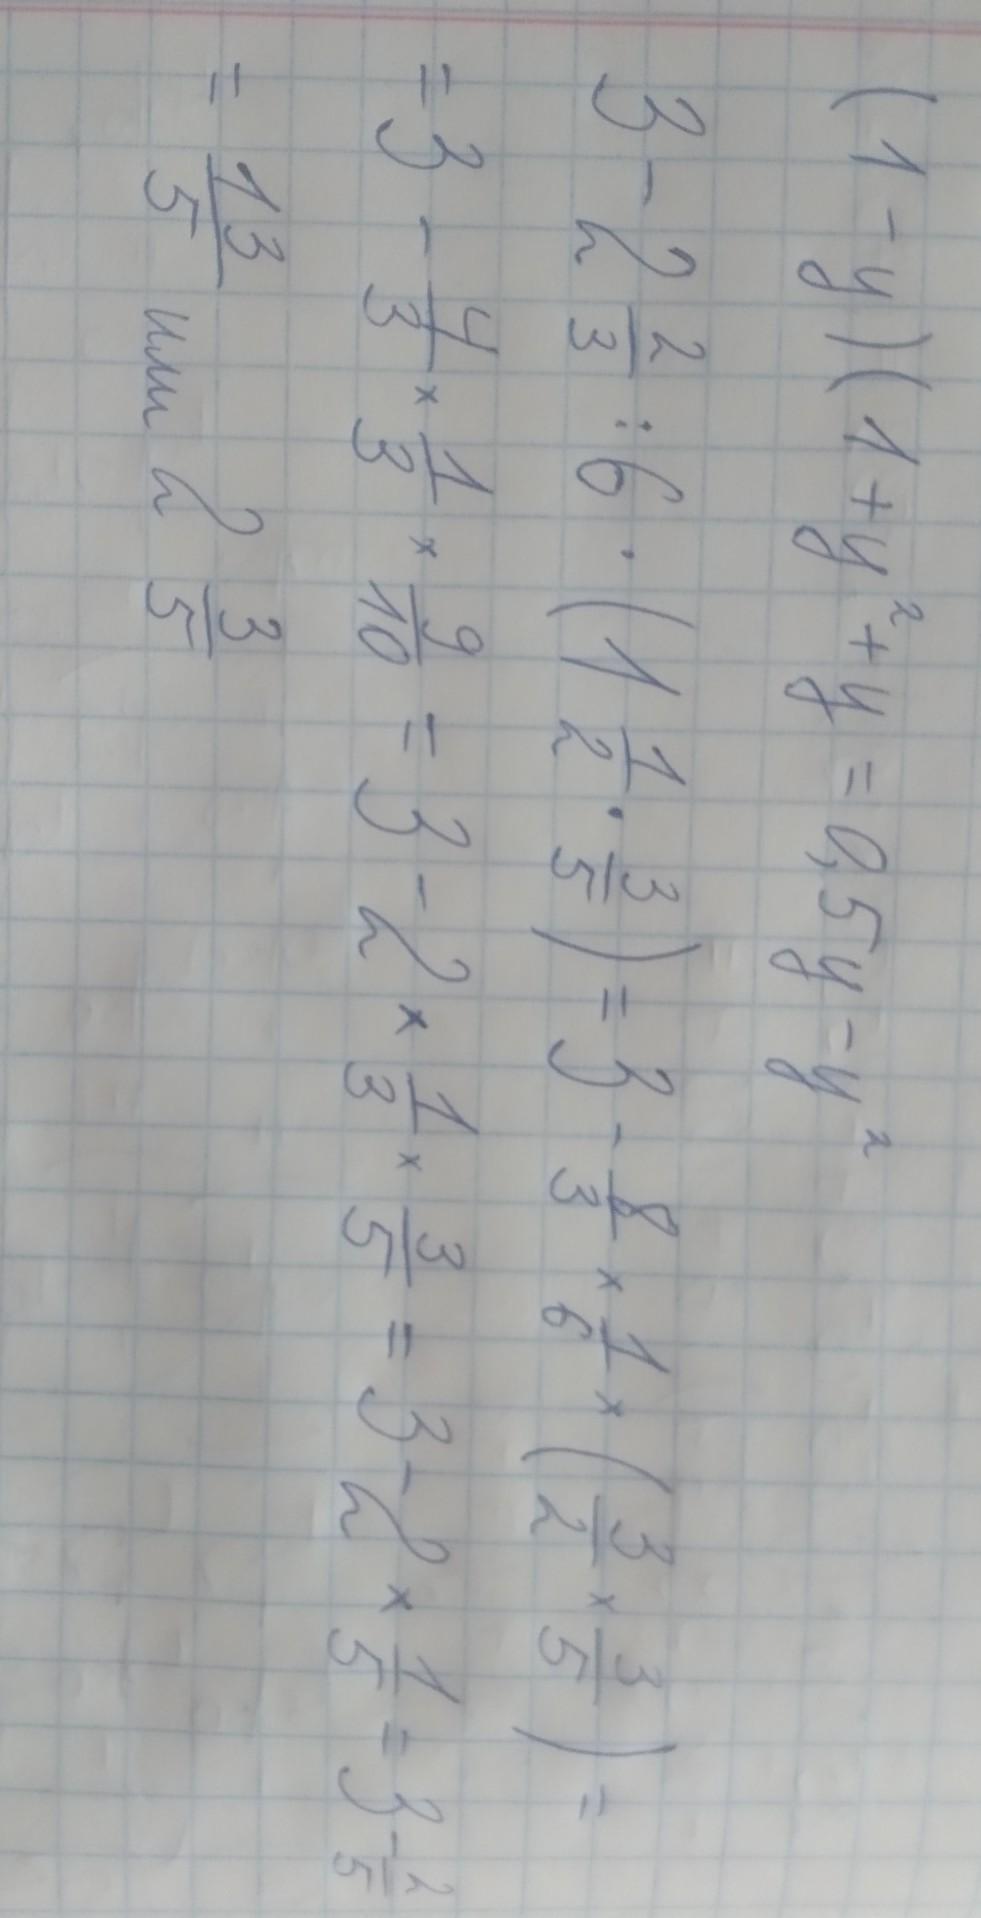 (1-y)(1+y²+y=0,5y-y²
3-2 2/3:6·(1 1/2·3/5)=3-8/3×1/6×(3/2×3/5)=
=3-4/3×1/3×9/10=3-2×1/3×3/5=3-2×1/5=3-2/5
=13/5 или 2 3/5